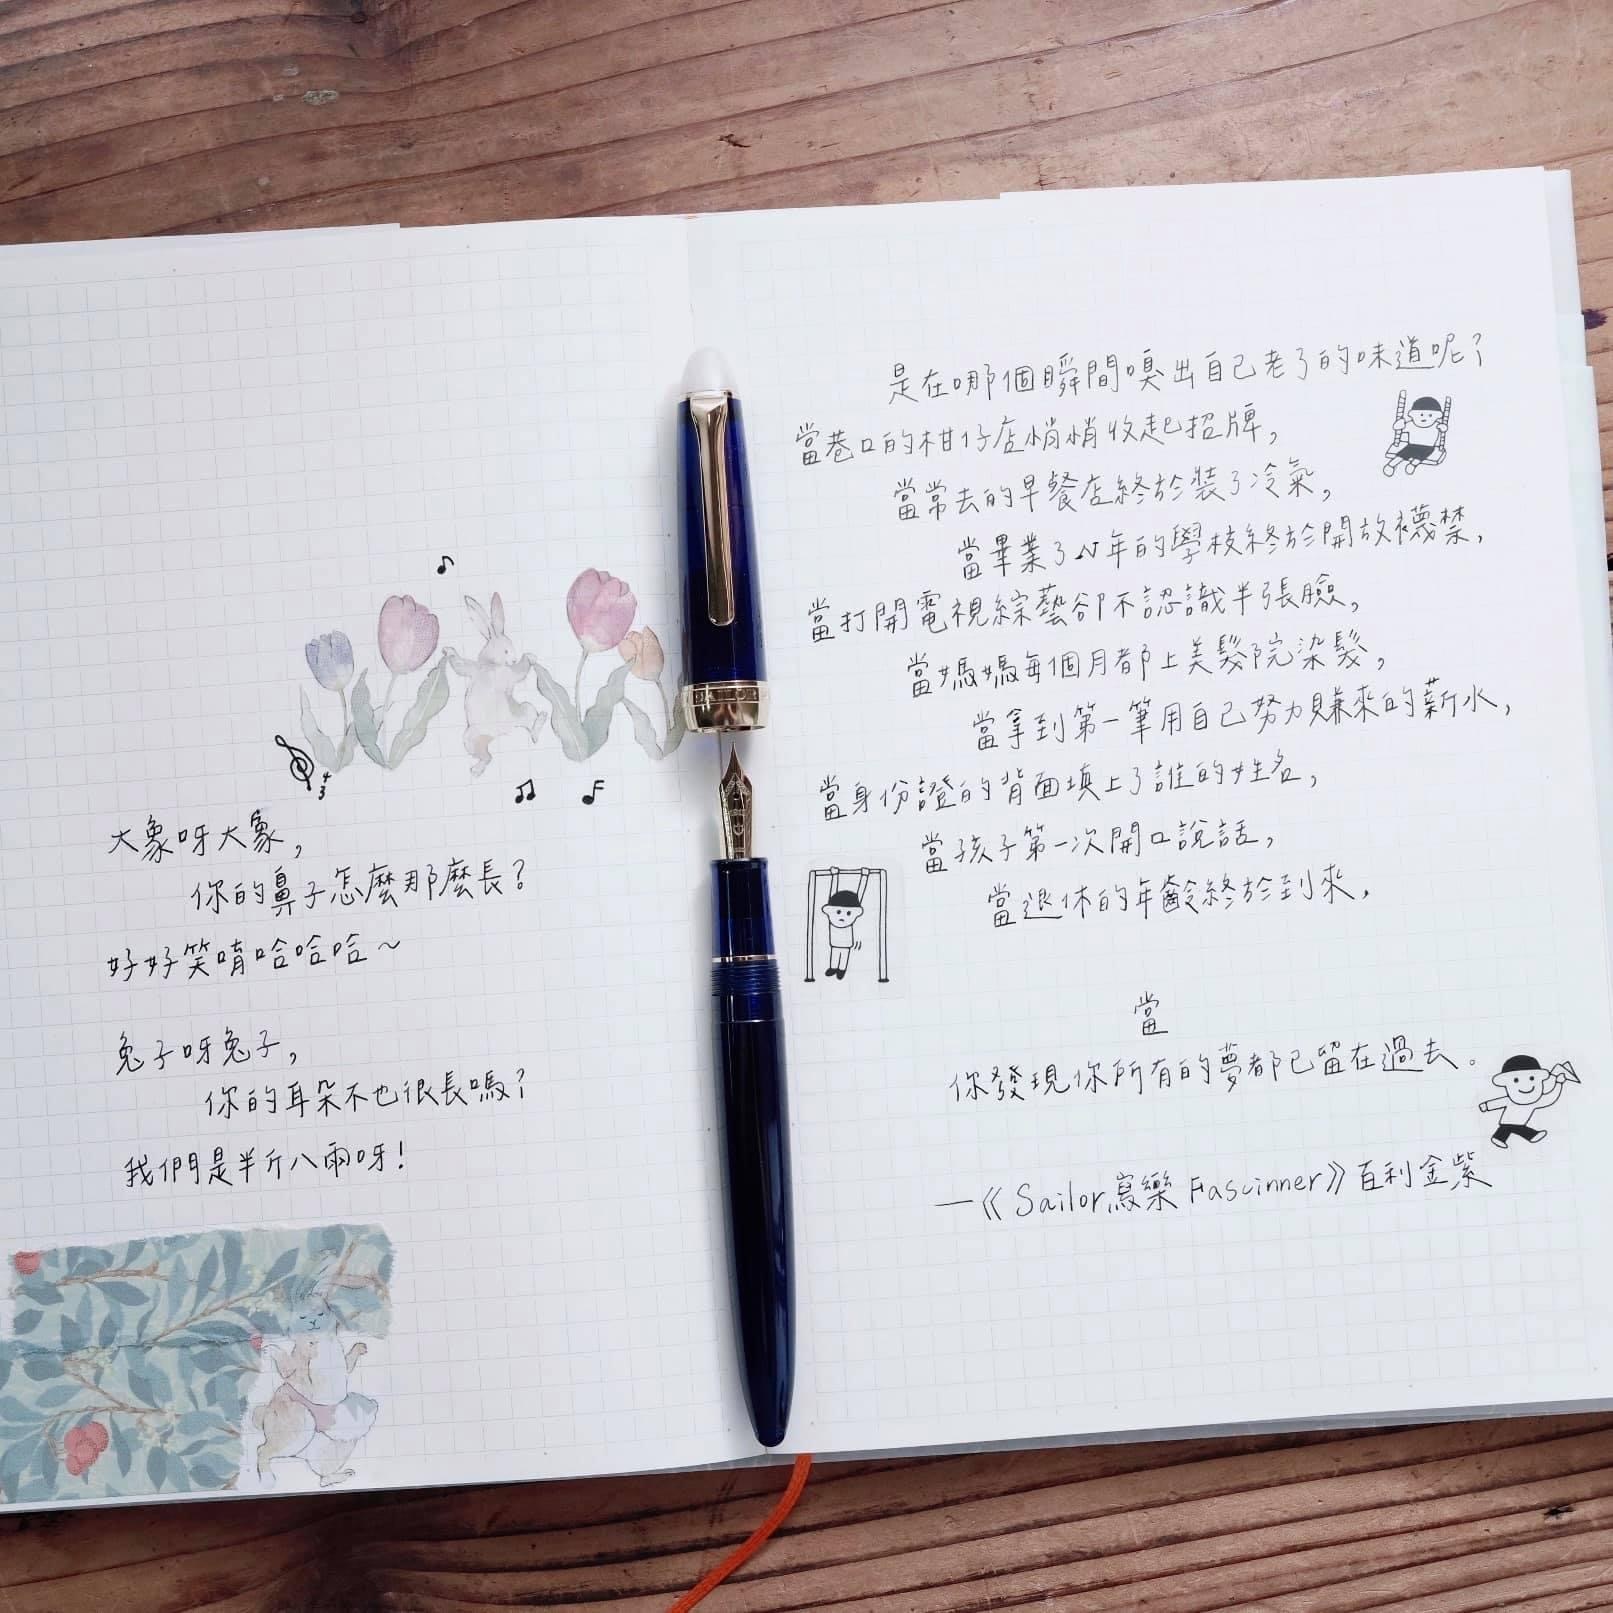 大象呀大象,
你的鼻子怎麼那麼長?
好好笑唷哈哈哈~
兔子呀兔子,
你的耳朵不也很長嗎?
我們是半斤八兩呀!
是在哪個瞬間嗅出自己老了的味道呢?
當巷口的柑仔店悄悄收起招牌,
當常去的早餐店終於裝了冷氣,
當畢業了N年的學校終於開放襪禁,
當打開電視綜藝卻不認識半張臉,
當媽媽每個月都上美髮院染髮,
當拿到第一筆用自己努力賺來的薪水,
當身份證的背面填上了誰的姓名,
當孩子第一次開口說話,
當退休的年齡終於到來,
當
你發現你所有的夢都已留在過去。
—《Sailor寫樂 Fascinner》百利金紫
SAILOR